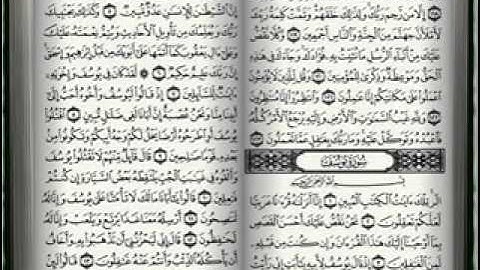 إِلَّا مَن رَّحِمَ رَبُّكَ وَلِذَٰلِكَ خَلَقَهُمْ وَتَمَّتْ كَلِمَةُ رَبِّكَ
لَأَمْلَأَنَّ جَهَنَّمَ مِنَ الْجِنَّةِ وَالنَّاسِ أَجْمَعِينَ ۝ وَكُلًّا نَّقُصُّ
عَلَيْكَ مِنْ أَنبَاءِ الرُّسُلِ مَا نُثَبِّتُ بِهِ فُؤَادَكَ وَجَاءَكَ فِي هَٰذِهِ
الْحَقُّ وَمَوْعِظَةٌ وَذِكْرَىٰ لِلْمُؤْمِنِينَ ۝ وَقُل لِّلَّذِينَ لَا يُؤْمِنُونَ
اعْمَلُوا عَلَىٰ مَكَانَتِكُمْ إِنَّا عَامِلُونَ ۝ وَانتَظِرُوا إِنَّا مُنتَظِرُونَ
۝ وَلِلَّهِ غَيْبُ السَّمَاوَاتِ وَالْأَرْضِ وَإِلَيْهِ يُرْجَعُ الْأَمْرُ كُلُّهُ
فَاعْبُدْهُ وَتَوَكَّلْ عَلَيْهِ وَمَا رَبُّكَ بِغَافِلٍ عَمَّا تَعْمَلُونَ ۝
سُورَةُ يُوسُفَ
بِسْمِ اللَّهِ الرَّحْمَٰنِ الرَّحِيمِ
الر تِلْكَ آيَاتُ الْكِتَابِ الْمُبِينِ ۝ إِنَّا أَنزَلْنَاهُ قُرْآنًا عَرَبِيًّا
لَّعَلَّكُمْ تَعْقِلُونَ ۝ نَحْنُ نَقُصُّ عَلَيْكَ أَحْسَنَ الْقَصَصِ
بِمَا أَوْحَيْنَا إِلَيْكَ هَٰذَا الْقُرْآنَ وَإِن كُنتَ مِن قَبْلِهِ
لَمِنَ الْغَافِلِينَ ۝ إِذْ قَالَ يُوسُفُ لِأَبِيهِ يَا أَبَتِ إِنِّي رَأَيْتُ
إِنَّ الشَّيْطَانَ لِلْإِنسَانِ عَدُوٌّ مُّبِينٌ ۝ وَكَذَٰلِكَ يَجْتَبِيكَ
رَبُّكَ وَيُعَلِّمُكَ مِن تَأْوِيلِ الْأَحَادِيثِ وَيُتِمُّ نِعْمَتَهُ عَلَيْكَ
وَعَلَىٰ آلِ يَعْقُوبَ كَمَا أَتَمَّهَا عَلَىٰ أَبَوَيْكَ مِن قَبْلُ إِبْرَاهِيمَ وَإِسْحَاقَ
إِنَّ رَبَّكَ عَلِيمٌ حَكِيمٌ ۝ لَّقَدْ كَانَ فِي يُوسُفَ وَإِخْوَتِهِ
آيَاتٌ لِّلسَّائِلِينَ ۝ إِذْ قَالُوا لَيُوسُفُ وَأَخُوهُ أَحَبُّ إِلَىٰ
أَبِينَا مِنَّا وَنَحْنُ عُصْبَةٌ إِنَّ أَبَانَا لَفِي ضَلَالٍ مُّبِينٍ ۝ اقْتُلُوا
يُوسُفَ أَوِ اطْرَحُوهُ أَرْضًا يَخْلُ لَكُمْ وَجْهُ أَبِيكُمْ وَتَكُونُوا مِن
بَعْدِهِ قَوْمًا صَالِحِينَ ۝ قَالَ قَائِلٌ مِّنْهُمْ لَا تَقْتُلُوا يُوسُفَ
وَأَلْقُوهُ فِي غَيَابَتِ الْجُبِّ يَلْتَقِطْهُ بَعْضُ السَّيَّارَةِ إِن كُنتُمْ
فَاعِلِينَ ۝ قَالُوا يَا أَبَانَا مَا لَكَ لَا تَأْمَنَّا عَلَىٰ يُوسُفَ وَإِنَّا لَهُ
لَنَاصِحُونَ ۝ أَرْسِلْهُ مَعَنَا غَدًا يَرْتَعْ وَيَلْعَبْ وَإِنَّا لَهُ
لَحَافِظُونَ ۝ قَالَ إِنِّي لَيَحْزُنُنِي أَن تَذْهَبُوا بِهِ وَأَخَافُ
أَن يَأْكُلَهُ الذِّئْبُ وَأَنتُمْ عَنْهُ غَافِلُونَ ۝ قَالُوا لَئِنْ